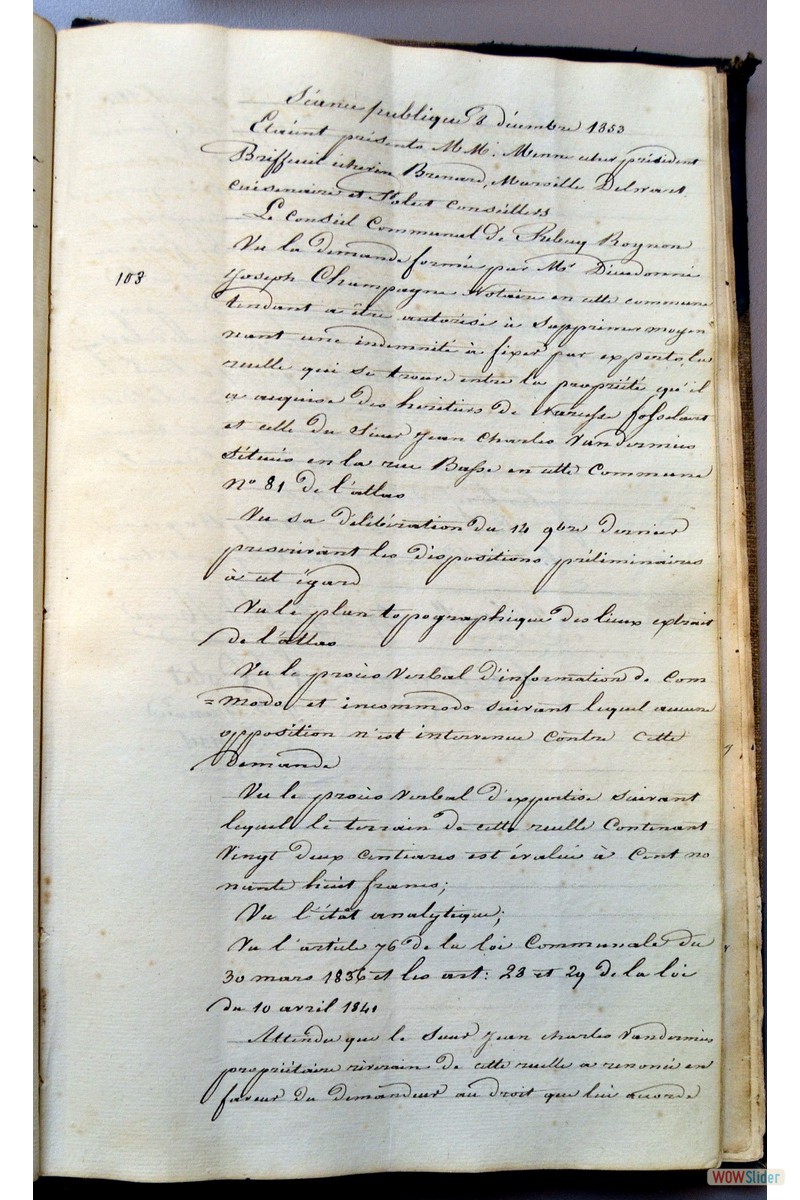 Séance publique 8 décembre 1853
Etaient présents MM. Menne echer président
Briffeuil echevin Brenard, Marville Delwart
cuisenaire et Polet Conseillers
Le Conseil Communal de Rebecq Rognon
103
Vu la demande formée par Mr Dieudonné
Joseph Champagne Notaire en cette commune
tendant a être autorisé à supprimer moyen
nant une indemnité à fixer par experts, la
ruelle qui se trouve entre la propriété qu'il
a acquise des heritiers de fosselart
et celle du Sieur Jean Charles Vandermies
situées en la rue Basse en cette Commune
No 81 de l'atlas
Vu sa délibération du 14 9bre dernier
prescrivant les dispositions préliminaires
à cet égard
Vu le plan topographique des lieux extrait
de l'atlas
Vu le procès Verbal d'information de Com
=modo et incommodo suivant lequel aucune
opposition n'est intervenue contre cette
demande
Vu le procès Verbal d'expertise suivant
lequel le terrain de cette ruelle Contenant
Vingt deux centiares est évalué à Cent no
nante huit francs;
Vu l'état analytique;
Vu l'article 76 de la loi Communale du
30 mars 1836 et les art: 28 et 29 de la loi
du 10 avril 1841
Attendu que le Sieur Jean Charles Vandermies
propriétaire riverain de cette ruelle a renoncé en
faveur du demandeur au droit que lui accorde
WOWSlider